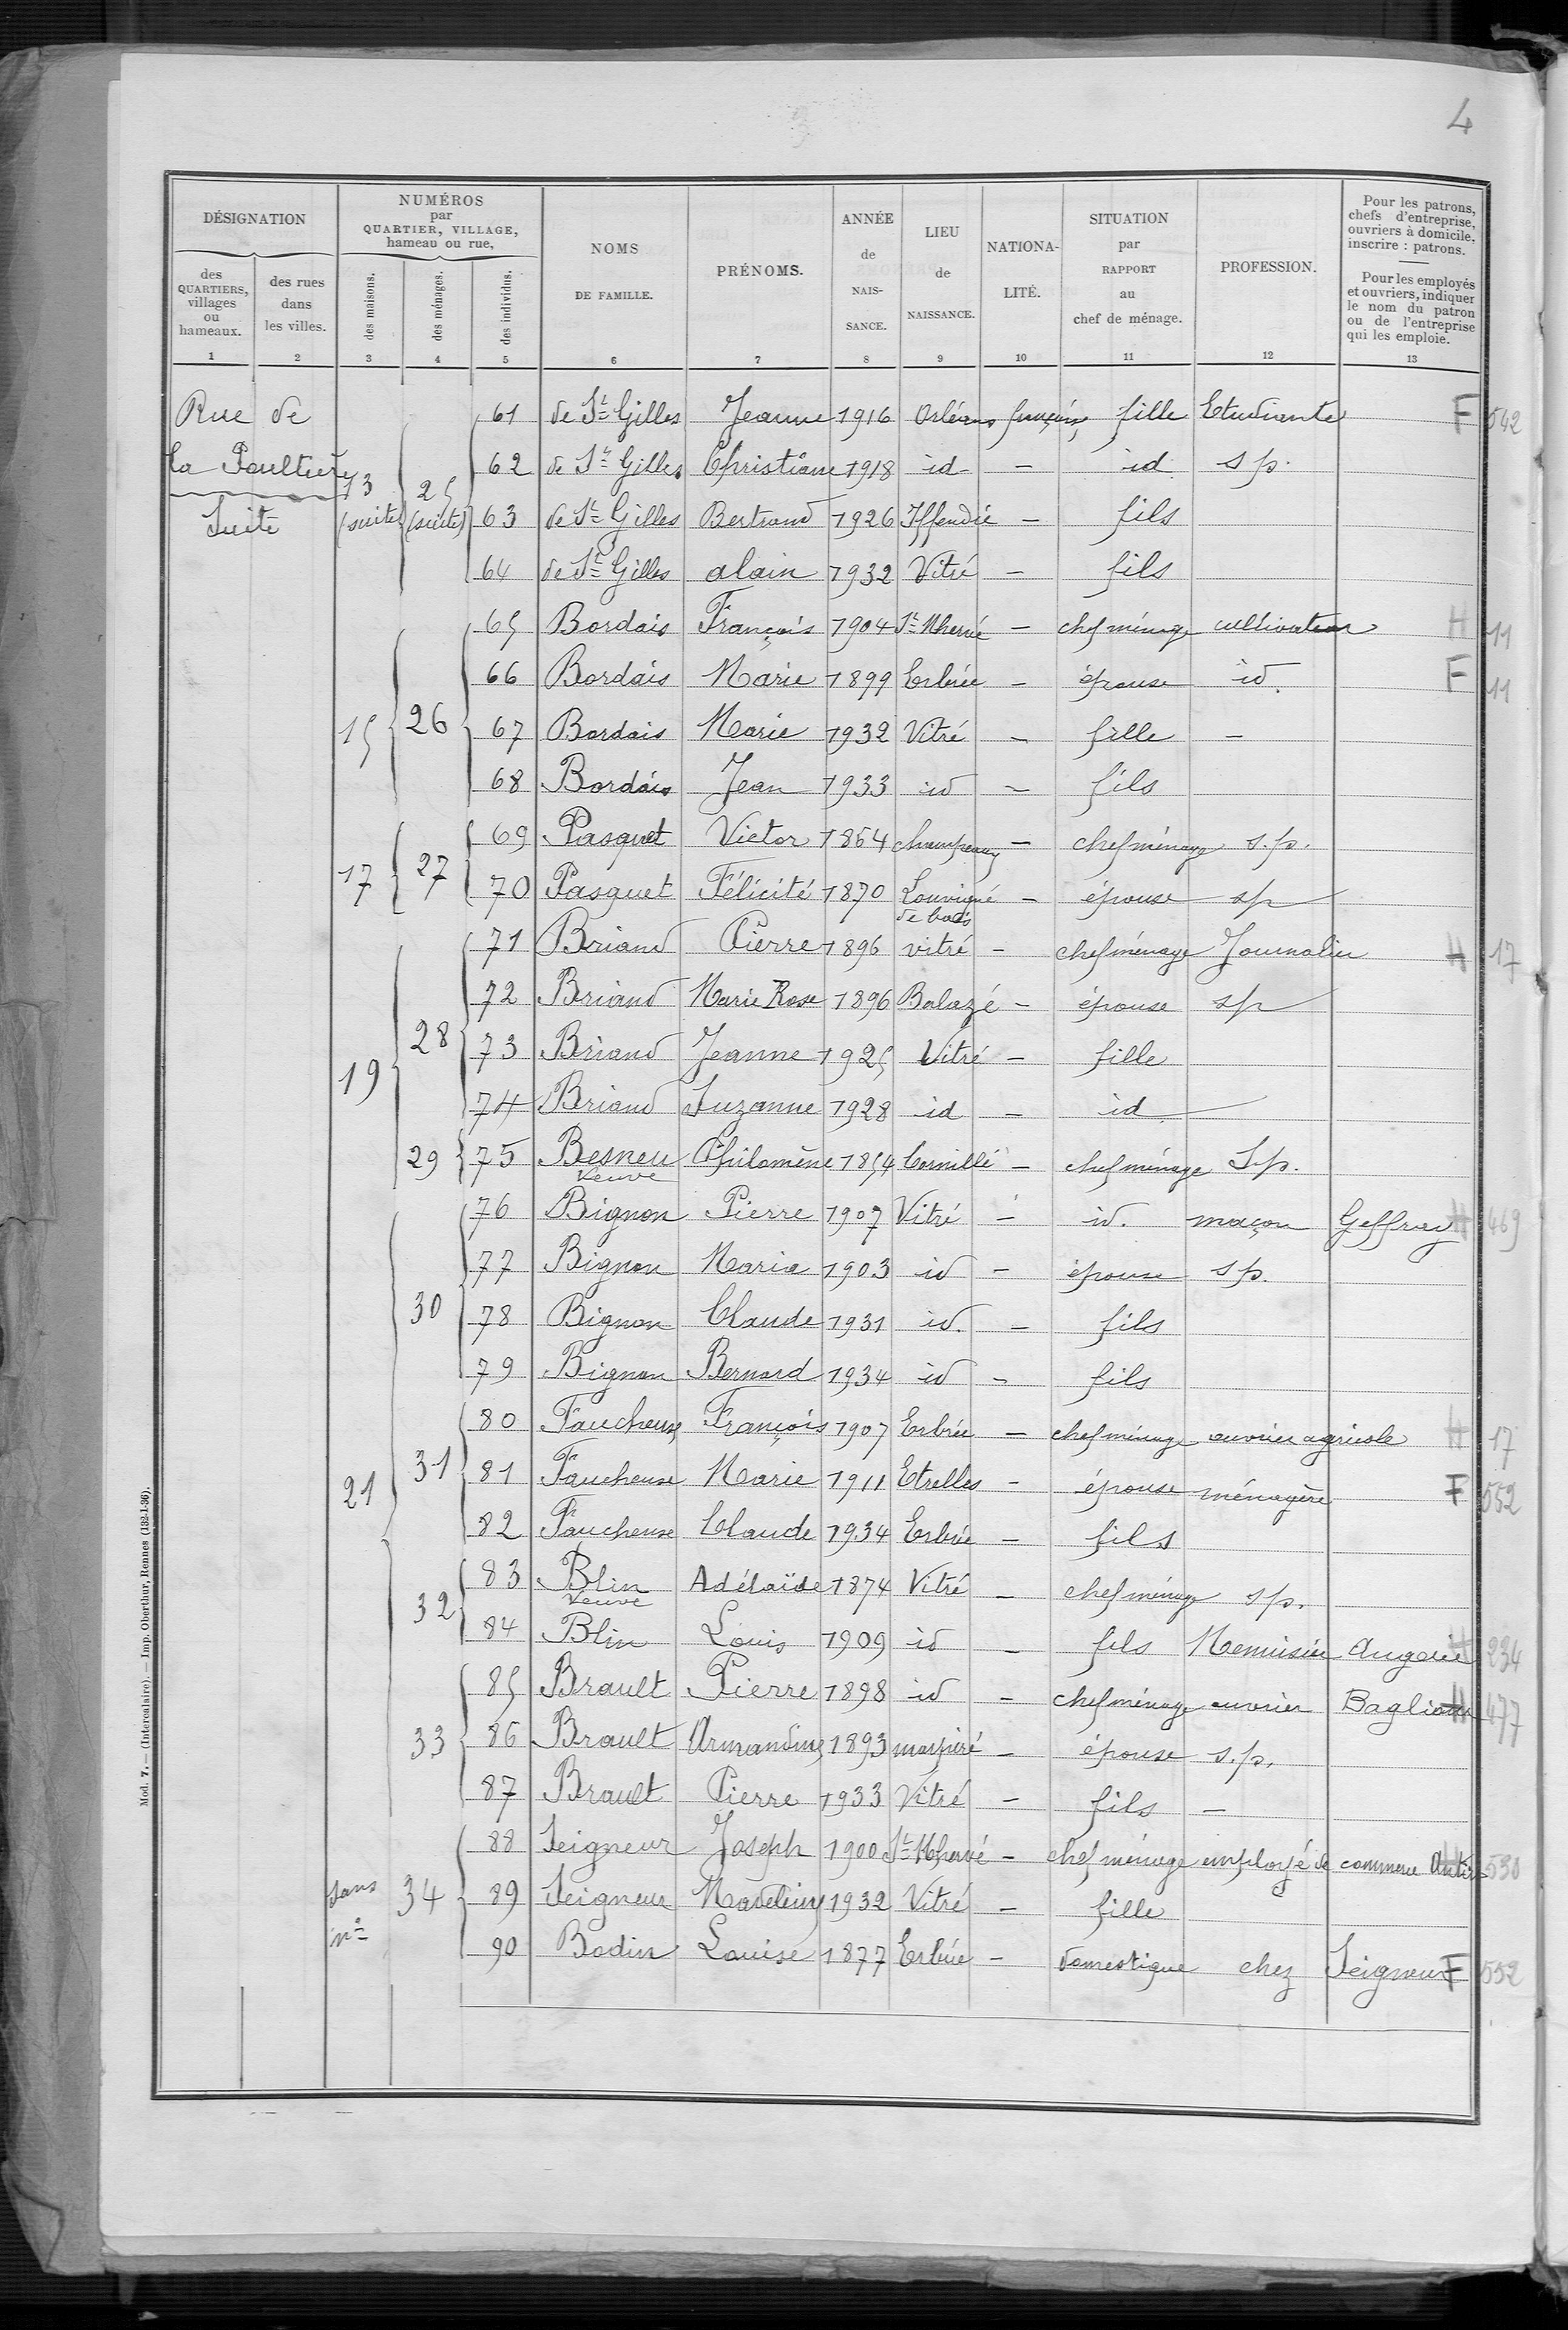 4
DÉSIGNATION
NUMÉROS
par
QUARTIER, VILLAGE,
hameau ou rue,
des
QUARTIERS,
villages
ou
hameaux.
1
des rues
dans
les villes.
2
des maisons.
3
des ménages.
4
des individus.
5
NOMS
DE FAMILLE.
6
PRÉNOMS.
7
ANNÉE
de
NAIS-
SANCE.
8
LIEU
de
NAISSANCE.
9
NATIONA-
LITÉ.
10
SITUATION
par
RAPPORT
au
chef de ménage.
11
PROFESSION.
12
Pour les patrons,
chefs d'entreprise,
ouvriers à domicile,
inscrire : patrons.
Pour les employés
et ouvriers, indiquer
le nom du patron
ou de l'entreprise
qui les emploie.
13
Rue de
la Poultière
Suite
13 (suite) 25 (suite)
61 de St Gilles Jeanne 1916 Orléans française fille Etudiante F 542
62 de St Gilles Christiane 1918 id - id sp.
63 de St Gilles Bertrand 1926 Iffendic - fils
64 de St Gilles alain 1932 Vitré - fils
15 26
65 Bordais François 1904 St Mhervé - chef ménage cultivateur H 11
66 Bordais Marie 1899 Erbrée - épouse id. F 11
67 Bordais Marie 1932 Vitré - fille -
68 Bordais Jean 1933 id - fils
17 27
69 Pasquet Victor 1864 champeaux - chef ménage s.p.
70 Pasquet Félicité 1870 Louvigné de bais - épouse sp
19 28
71 Briand Pierre 1896 vitré - chef ménage Journalier H 17
72 Briand Marie Rose 1896 Balazé - épouse sp
73 Briand Jeanne 1925 Vitré - fille
74 Briand Suzanne 1928 id - id
29 75 Besneu Veuve Philomène 1854 Cornillé - chef ménage S.p.
21 30
76 Bignon Pierre 1907 Vitré - id. maçon Geffray H 469
77 Bignon Maria 1903 id - épouse sp.
78 Bignon Claude 1931 id. - fils
79 Bignon Bernard 1934 id - fils
31
80 Faucheux François 1907 Erbrée - chef ménage ouvrier agricole H 17
81 Faucheuse Marie 1911 Etrelles - épouse ménagère F 552
82 Faucheuse Claude 1934 Erbrée - fils
32
83 Blin Veuve Adélaïde 1874 Vitré - chef ménage s.p.
84 Blin Louis 1909 id - fils Menuisier H 234
33
85 Brault Pierre 1898 id - chef ménage ouvrier H 477
86 Brault Armandine 1893 marpiré - épouse s.p.
87 Brault Pierre 1933 Vitré - fils -
sans no 34
88 Seigneur Joseph 1900 St Mhervé - chef ménage employé de commerce H 530
89 Seigneur Madeleine 1932 Vitré - fille
90 Bodin Louise 1877 Erbrée - domestique chez Seigneur F 552
Mod. 7. — (Intercalaire). — Imp. Oberthur, Rennes (132-1-36).